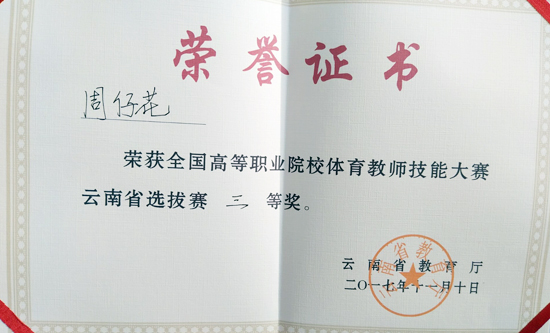 荣誉证书
周仔花
荣获全国高等职业院校体育教师技能大赛
云南省选拔赛 三 等奖。
云南省教育厅
二〇一七年十一月十日
云南省教育厅